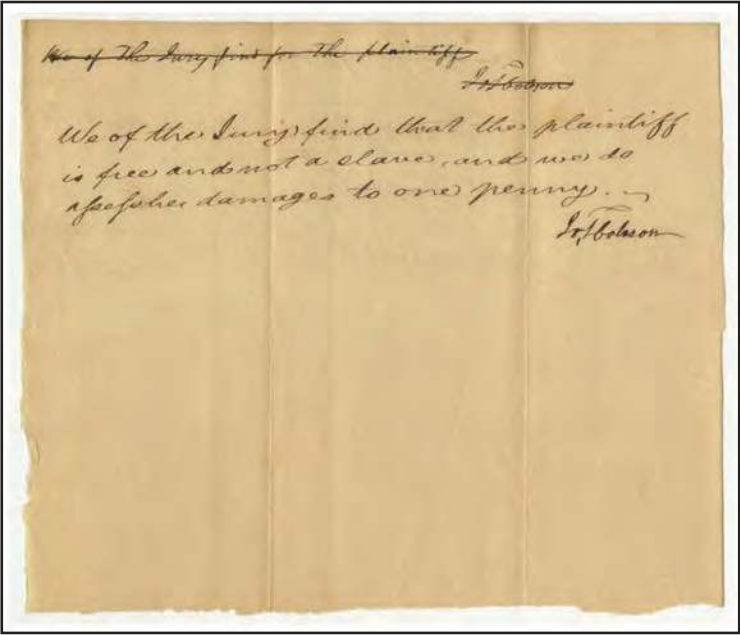 We of The Jury find for The plaintiff
We of the Jury find that the plaintiff
is free and not a slave, and we do
assess her damages to one penny.